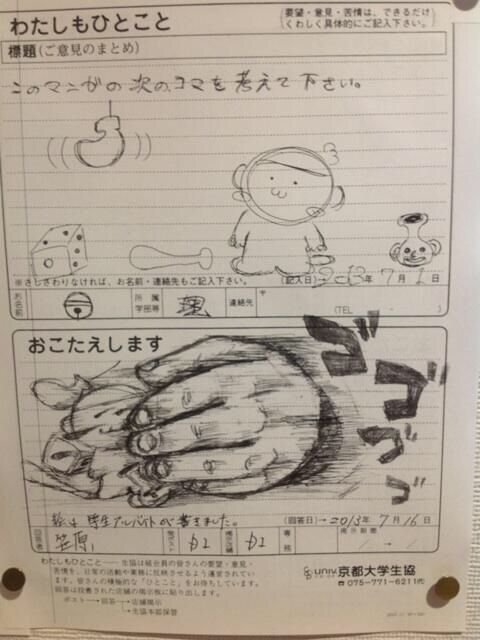 わたしもひとこと
要望・意見・苦情は、できるだけ
くわしく具体的にご記入下さい。
標題(ご意見のまとめ)
このマンガの次のコマを考えて下さい。
※さしさわりなければ、お名前・連絡先もご記入下さい。
(記入日)→2013年 7月 1日
お名前
所属学部等
理
連絡先
〒
(TEL - )
おこたえします
ゴゴゴゴ
絵は学生アルバイトが書きました。
(回答日)→2013年 7月 16日
回答者
笠原
掲示店舗
専務
掲示期間
/ → /
わたしもひとこと――生協は組合員の皆さんの要望・意見・
苦情を、日常の活動や業務に反映させるよう運営されてい
ます。皆さんの積極的な「ひとこと」をお待ちしています。
回答は投書された店舗の掲示板に貼り出します。
ポスト→回答→店舗掲示
→生協本部保管
univ. 京都大学生協
☎075-771-6211㈹